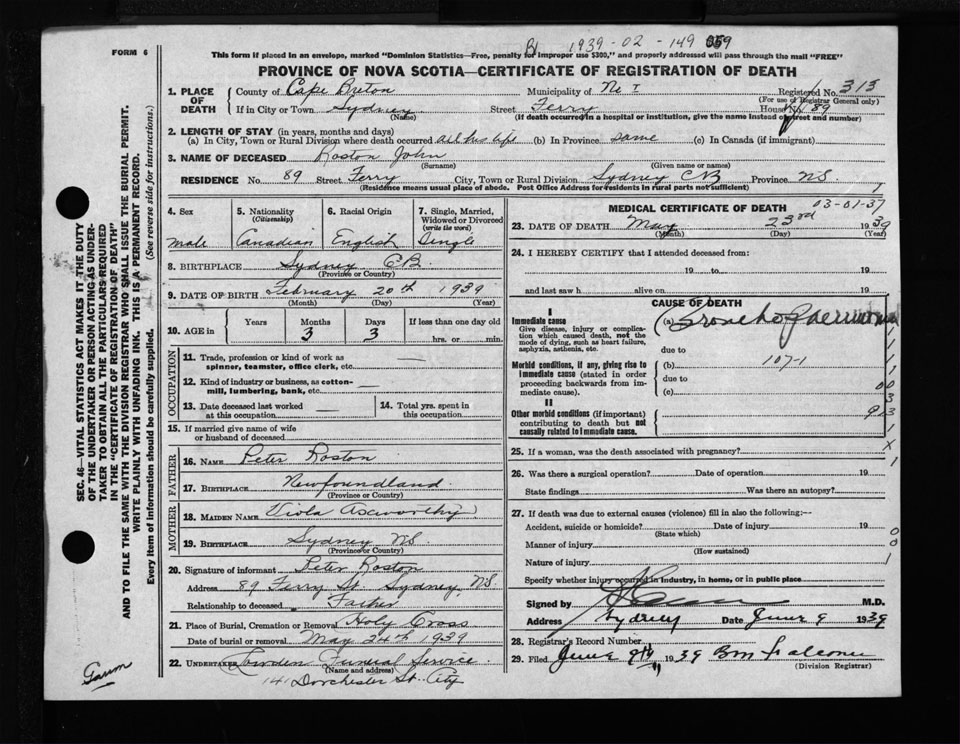 FORM 6
This form if placed in an envelope, marked "Dominion Statistics—Free, penalty for improper use $300," and properly addressed will pass through the mail "FREE"
1939-02-149 059
PROVINCE OF NOVA SCOTIA—CERTIFICATE OF REGISTRATION OF DEATH
1. PLACE OF DEATH
County of Cape Breton Municipality of No I Registered No. 313
(For use of Registrar General only)
If in City or Town Sydney Street Ferry House No. 89
(Name) (If death occurred in a hospital or institution, give the name instead of street and number)
2. LENGTH OF STAY (in years, months and days)
(a) In City, Town or Rural Division where death occurred all his life (b) In Province same (c) In Canada (if immigrant)
3. NAME OF DECEASED Roston John
(Surname) (Given name or names)
RESIDENCE No. 89 Street Ferry City, Town or Rural Division Sydney CB Province NS
(Residence means usual place of abode. Post Office Address for residents in rural parts not sufficient)
4. Sex 5. Nationality 6. Racial Origin 7. Single, Married,
(Citizenship) Widowed or Divorced
(write the word)
male Canadian English Single
8. BIRTHPLACE Sydney CB
(Province or Country)
9. DATE OF BIRTH February 20th 1939
(Month) (Day) (Year)
10. AGE in Years Months Days If less than one day old
3 3 hrs. or min.
OCCUPATION
11. Trade, profession or kind of work as
spinner, teamster, office clerk, etc.
12. Kind of industry or business, as cotton-
mill, lumbering, bank, etc.
13. Date deceased last worked
at this occupation
14. Total yrs. spent in
this occupation
15. If married give name of wife
or husband of deceased
FATHER
16. NAME Peter Roston
17. BIRTHPLACE Newfoundland
(Province or Country)
MOTHER
18. MAIDEN NAME Viola Axworthy
19. BIRTHPLACE Sydney NS
(Province or Country)
20. Signature of informant Peter Roston
Address 89 Ferry St. Sydney, NS
Relationship to deceased Father
21. Place of Burial, Cremation or Removal Holy Cross
Date of burial or removal May 24th 1939
22. UNDERTAKER Lowden Funeral Service
(Name and address)
141 Dorchester St. City
MEDICAL CERTIFICATE OF DEATH
03-01-37
23. DATE OF DEATH May 23rd 1939
(Month) (Day) (Year)
24. I HEREBY CERTIFY that I attended deceased from:
19 to 19
and last saw h alive on 19
CAUSE OF DEATH
I
Immediate cause
Give disease, injury or complica-
tion which caused death, not the
mode of dying, such as heart failure,
asphyxia, asthenia, etc.
(a) Broncho Pneumonia
due to
Morbid conditions, if any, giving rise to
immediate cause (stated in order
proceeding backwards from im-
mediate cause).
(b) 107-1
due to
(c)
II
Other morbid conditions (if important)
contributing to death but not
causally related to immediate cause.
25. If a woman, was the death associated with pregnancy?
26. Was there a surgical operation? Date of operation 19
State findings Was there an autopsy?
27. If death was due to external causes (violence) fill in also the following:—
Accident, suicide or homicide? Date of injury 19
(State which)
Manner of injury
(How sustained)
Nature of injury
Specify whether injury occurred in industry, in home, or in public place
Signed by M.D.
Address Sydney Date June 9 1939
28. Registrar's Record Number
29. Filed June 9th 1939
(Division Registrar)
SEC. 46—VITAL STATISTICS ACT MAKES IT THE DUTY
OF THE UNDERTAKER OR PERSON ACTING AS UNDER-
TAKER TO OBTAIN ALL THE PARTICULARS REQUIRED
IN THE "CERTIFICATE OF REGISTRATION OF DEATH"
AND TO FILE THE SAME WITH THE DIVISION REGISTRAR WHO SHALL ISSUE THE BURIAL PERMIT.
WRITE PLAINLY WITH UNFADING INK. THIS IS A PERMANENT RECORD.
Every item of information should be carefully supplied. (See reverse side for instructions.)